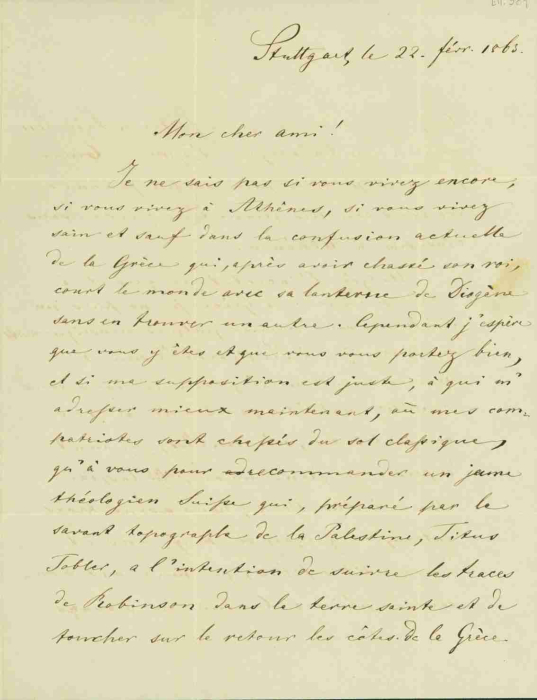 Stuttgart, le 22. févr. 1863.
Mon cher ami!
Je ne sais pas si vous vivez encore,
si vous vivez à Athènes, si vous vivez
sain et sauf dans la confusion actuelle
de la Grèce qui, après avoir chassé son roi,
court le monde avec sa lanterne de Diogène
sans en trouver un autre. Cependant j'espère
que vous y êtes et que vous vous portez bien,
et si ma supposition est juste, à qui m'
adresser mieux maintenant, où mes com-
patriotes sont chassés du sol classique,
qu'à vous pour recommander un jeune
théologien Suisse qui, préparé par le
savant topographe de la Palestine, Titus
Tobler, a l'intention de suivre les traces
de Robinson dans la terre sainte et de
toucher sur le retour les côtes de la Grèce.